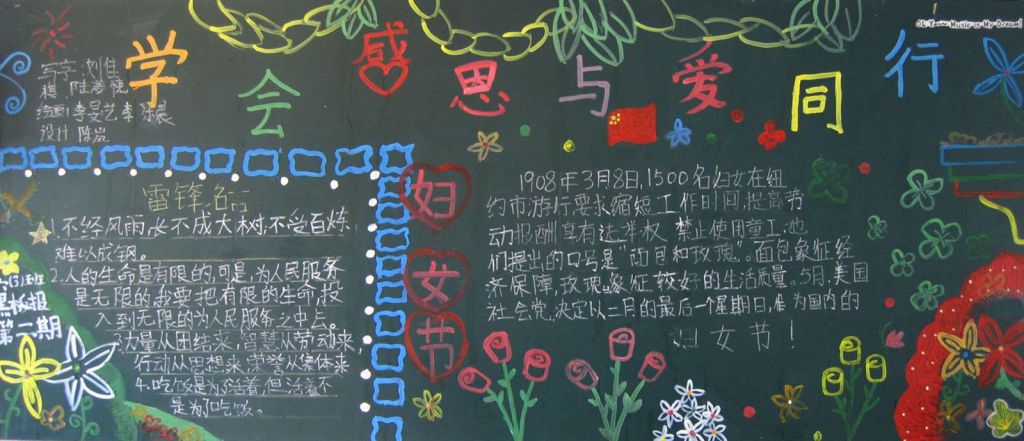 学会感思与爱同行
Oh Yeww Music is My Dream!
写字:刘佳
陆姜悦
绘画:李旻艺 李沐晨
设计 陈岚
雷锋名言
1.不经风雨,长不成大树,不受百炼
难以成钢。
2.人的生命是有限的,可是,为人民服务
是无限的,我要把有限的生命,投
入到无限的为人民服务之中去。
3.力量从团结来,智慧从劳动来,
行动从思想来,荣誉从集体来
4.吃饭是为了活着,但活着不
是为了吃饭。
黑板报
第一期
妇女节
1908年3月8日,1500名妇女在纽
约市,游行要求缩短工作时间,提高劳
动报酬享有选举权 禁止使用童工,她
们提出的口号是“面包和玫瑰”。面包象征经
济保障,玫瑰象征较好的生活质量。5月,美国
社会党,决定以二月的最后一个星期日,作为国内的
妇女节!